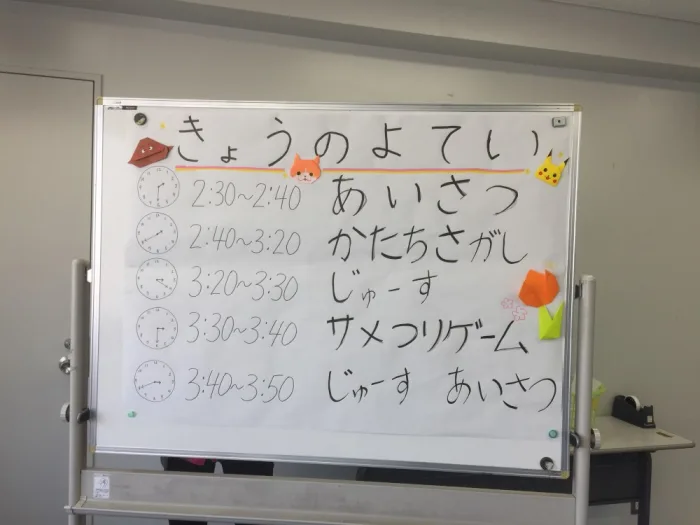 きょうのよてい
2:30~2:40 あいさつ
2:40~3:20 かたちさがし
3:20~3:30 じゅーす
3:30~3:40 サメつりゲーム
3:40~3:50 じゅーす あいさつ